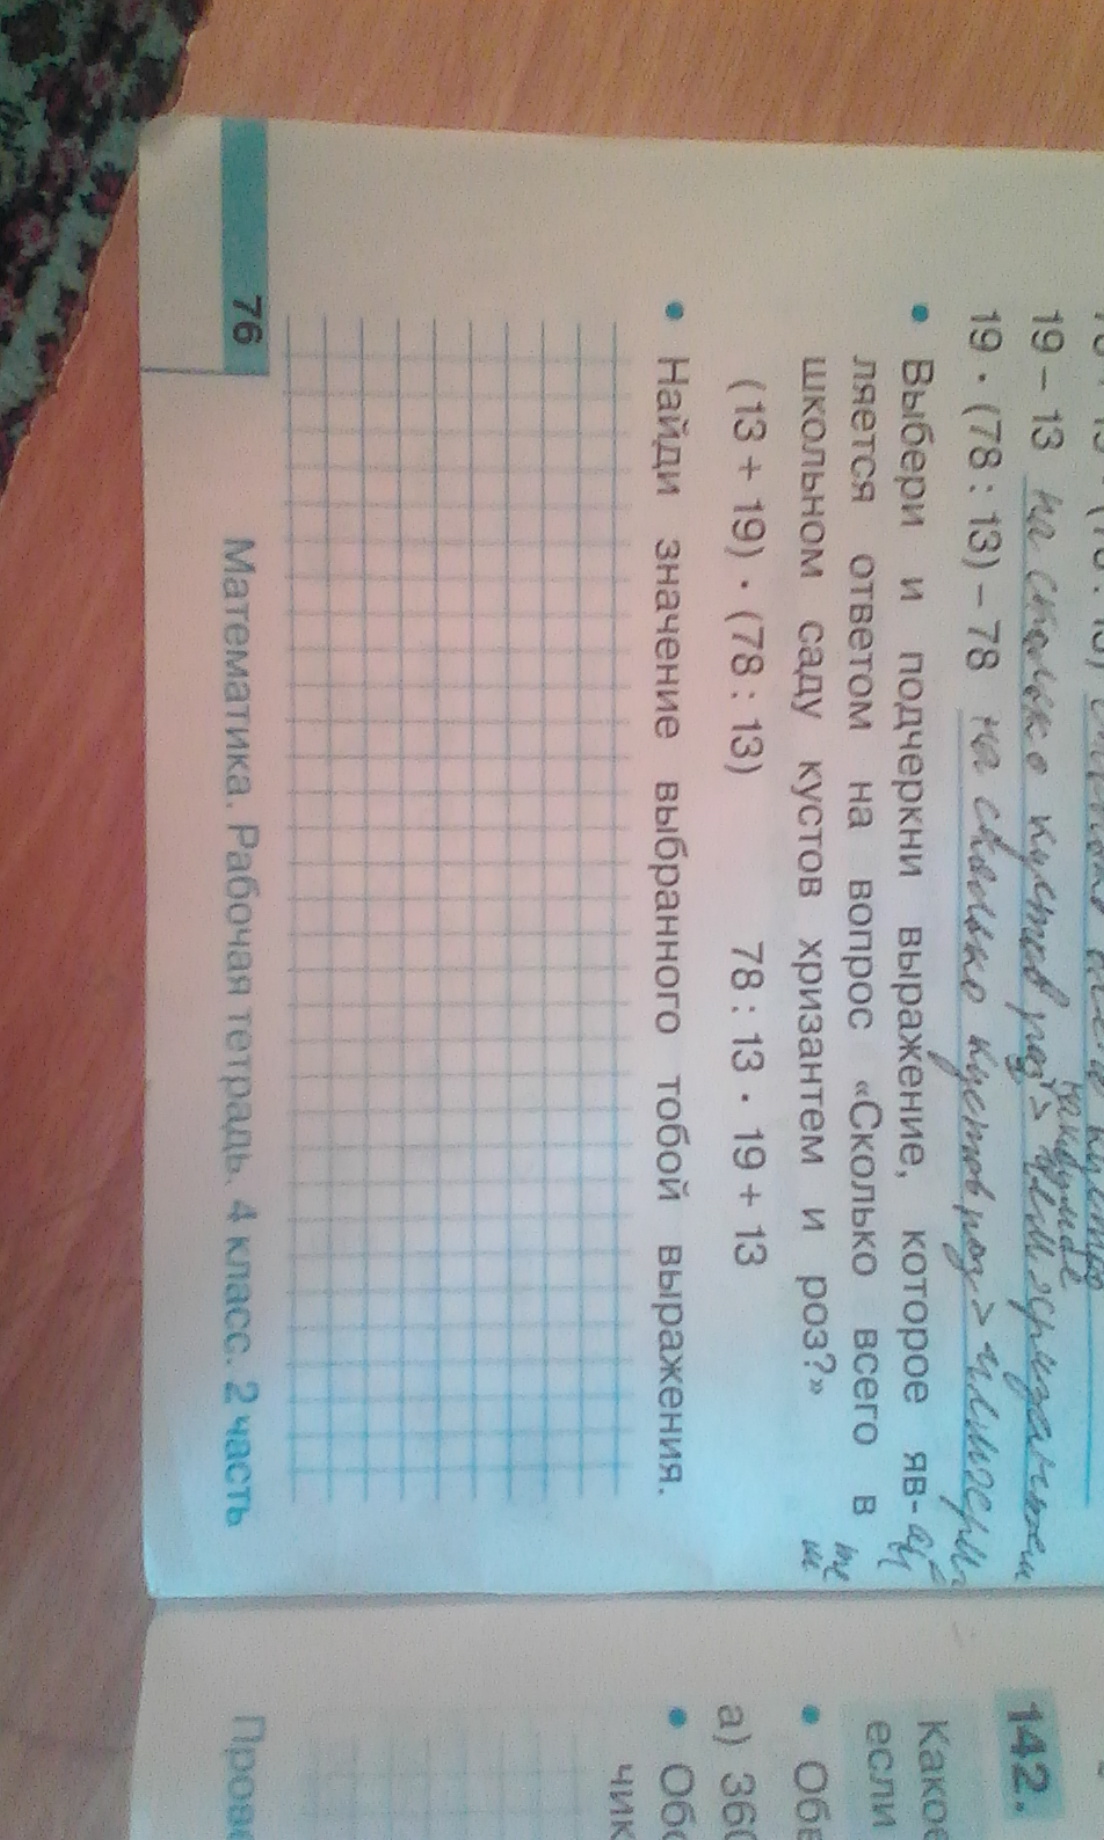 19 – 13 на сколько кустов роз > чем хризантем
19 · (78 : 13) – 78 на сколько кустов роз >
• Выбери и подчеркни выражение, которое яв-
ляется ответом на вопрос «Сколько всего в
школьном саду кустов хризантем и роз?»
(13 + 19) · (78 : 13) 78 : 13 · 19 + 13
• Найди значение выбранного тобой выражения.
76 Математика. Рабочая тетрадь. 4 класс. 2 часть
142.
если
•
а) 360
•